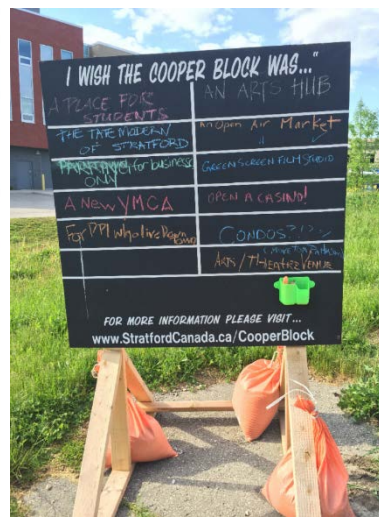 I WISH THE COOPER BLOCK WAS..."
A PLACE FOR
STUDENTS
THE TATE MODERN
OF STRATFORD
for business
ONLY
A New YMCA
FOR PPl who live Down
Town
AN ARTS HUB
An Open Air Market
GREENSCREEN FILM STUDIO
OPEN A CASINO!
CONDOS?!?
ARTS / THEATRE VENUE
FOR MORE INFORMATION PLEASE VISIT...
www.StratfordCanada.ca/CooperBlock